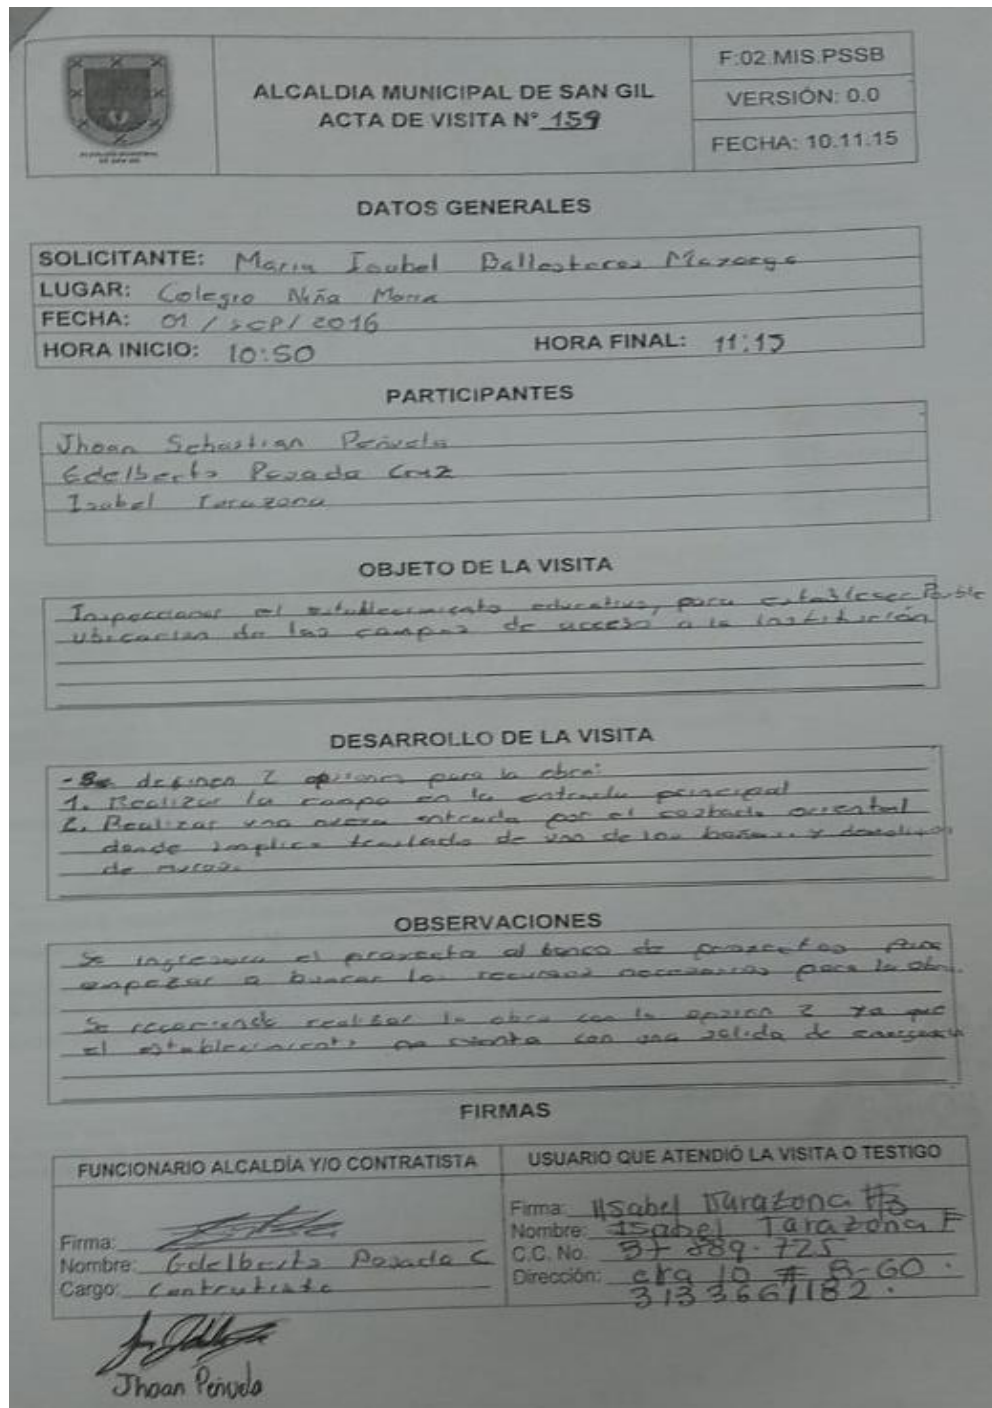 ALCALDIA MUNICIPAL DE SAN GIL
ACTA DE VISITA N° 159
F:02.MIS.PSSB
VERSIÓN: 0.0
FECHA: 10.11.15
DATOS GENERALES
SOLICITANTE: Maria Isabel Ballesteros
LUGAR: Colegio Niña Maria
FECHA: 01 / sep / 2016
HORA INICIO: 10:50 HORA FINAL: 11:15
PARTICIPANTES
Jhoan Sebastian Peñuela
Edelberto Posada Cruz
Isabel Tarazona
OBJETO DE LA VISITA
Inspeccionar el establecimiento educativo, para establecer Posible
ubicacion de las rampas de acceso a la institución
DESARROLLO DE LA VISITA
- Se definen 2 opciones para la obra:
1. Realizar la rampa en la entrada principal
2. Realizar una nueva entrada por el costado oriental
donde implica traslado de uno de los baños y
de muros.
OBSERVACIONES
Se ingresara el proyecto al banco de proyectos para
empezar a buscar los recursos necesarios para la obra.
Se recomienda realizar la obra con la opcion 2 ya que
el establecimiento no cuenta con una salida de emergencia
FIRMAS
FUNCIONARIO ALCALDÍA Y/O CONTRATISTA
Firma:
Nombre: Edelberto Posada C
Cargo: Contratista
Jhoan Peñuela
USUARIO QUE ATENDIÓ LA VISITA O TESTIGO
Firma: Isabel Tarazona
Nombre: Isabel Tarazona F
C.C. No. 37 889.725
Dirección: cra 10 # 8-60.
3133661182.